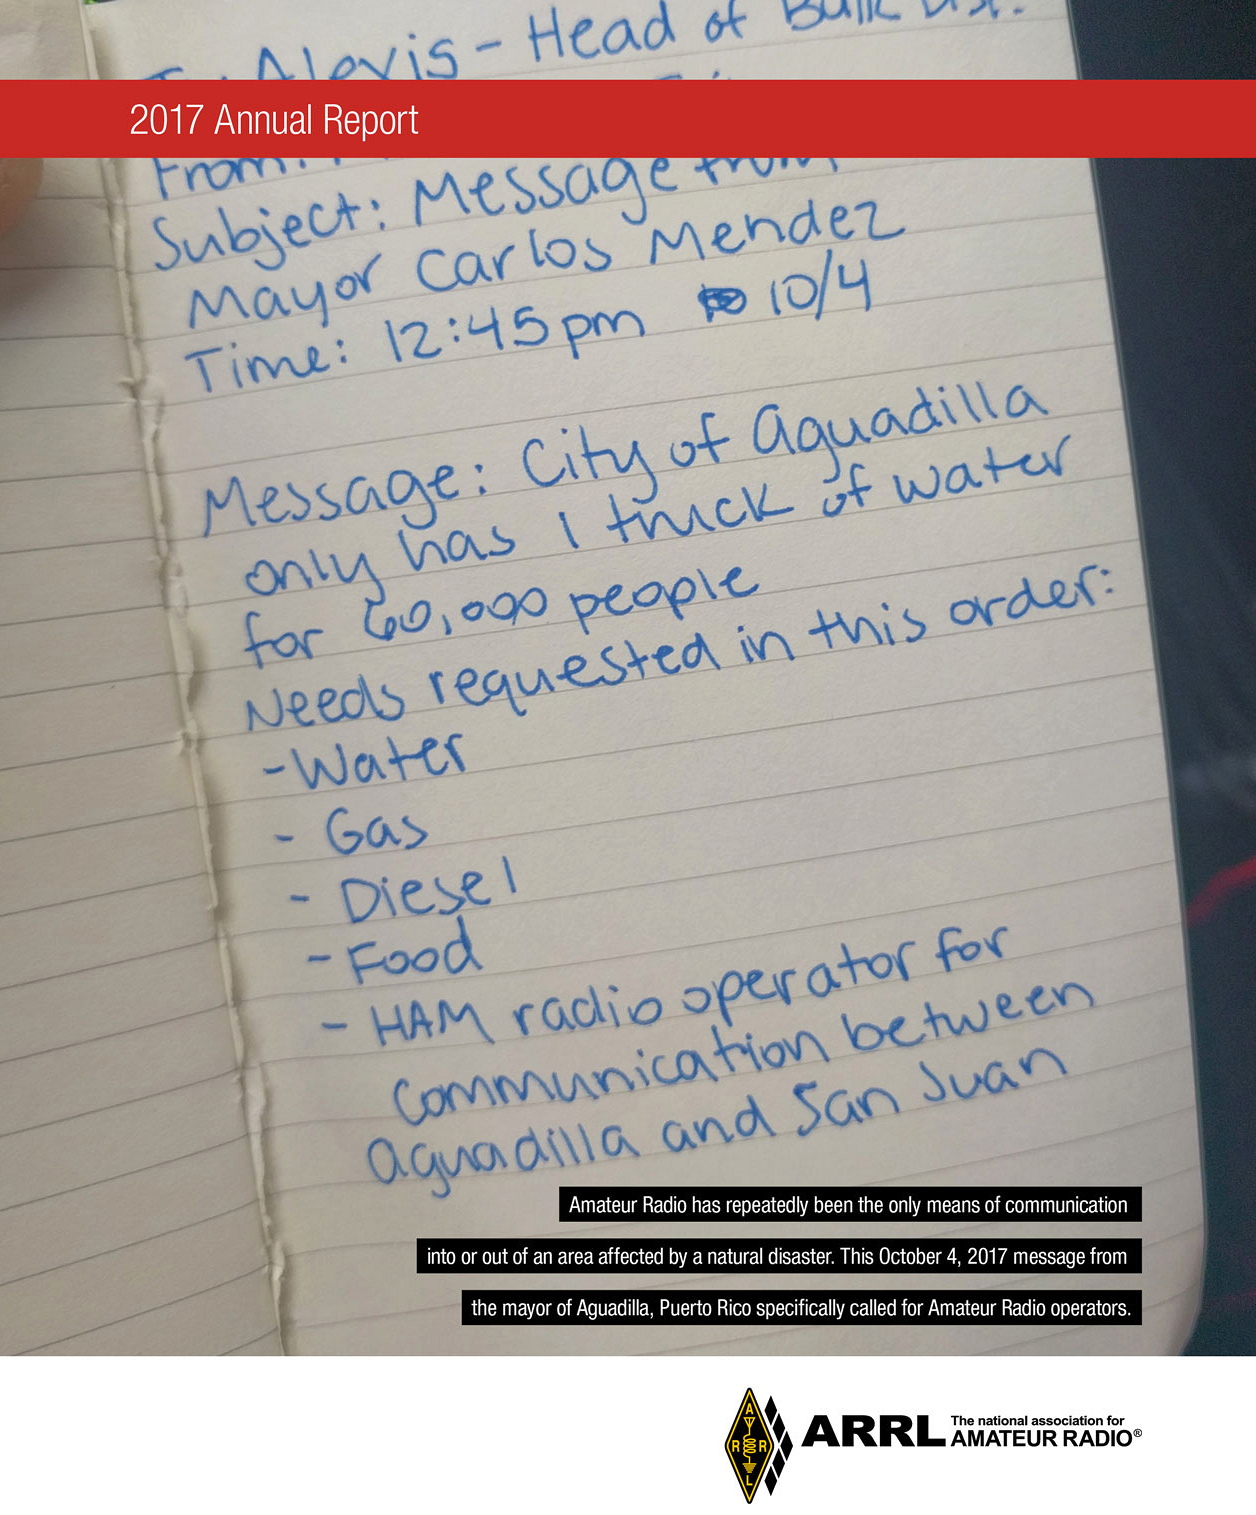 To: Alexis - Head of Bulk Dist.
2017 Annual Report
From:
Subject: Message from
Mayor Carlos Mendez
Time: 12:45pm 10/4
Message: City of Aguadilla
only has 1 truck of water
for 60,000 people
Needs requested in this order:
- Water
- Gas
- Diesel
- Food
- HAM radio operator for
communication between
Aguadilla and San Juan
Amateur Radio has repeatedly been the only means of communication
into or out of an area affected by a natural disaster. This October 4, 2017 message from
the mayor of Aguadilla, Puerto Rico specifically called for Amateur Radio operators.
A
R R
L
ARRL The national association for
AMATEUR RADIO®